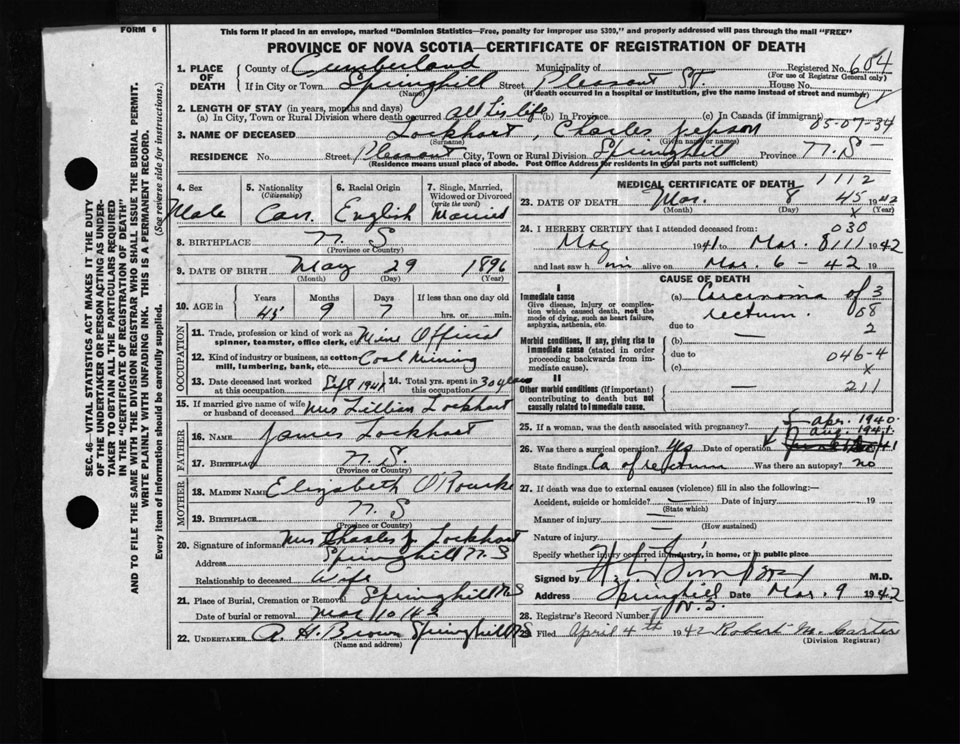 FORM 6
This form if placed in an envelope, marked "Dominion Statistics—Free, penalty for improper use $300," and properly addressed will pass through the mail "FREE"
PROVINCE OF NOVA SCOTIA—CERTIFICATE OF REGISTRATION OF DEATH
SEC. 46—VITAL STATISTICS ACT MAKES IT THE DUTY
OF THE UNDERTAKER OR PERSON ACTING AS UNDER-
TAKER "TO OBTAIN ALL THE PARTICULARS REQUIRED
IN THE "CERTIFICATE OF REGISTRATION OF DEATH"
AND TO FILE THE SAME WITH THE DIVISION REGISTRAR WHO SHALL ISSUE THE BURIAL PERMIT.
WRITE PLAINLY WITH UNFADING INK. THIS IS A PERMANENT RECORD.
Every item of information should be carefully supplied. (See reverse side for instructions.)
1. PLACE OF DEATH
County of Cumberland Municipality of Registered No. 604
(For use of Registrar General only)
If in City or Town Springhill Street Pleasant St. House No.
(Name) (If death occurred in a hospital or institution, give the name instead of street and number)
2. LENGTH OF STAY (in years, months and days)
(a) In City, Town or Rural Division where death occurred All his life (b) In Province (c) In Canada (if immigrant)
3. NAME OF DECEASED Lockhart, Charles Jepson 05-07-34
(Surname) (Given name or names)
RESIDENCE No. Street Pleasant City, Town or Rural Division Springhill Province N.S
(Residence means usual place of abode. Post Office Address for residents in rural parts not sufficient)
4. Sex
Male
5. Nationality
(Citizenship)
Can.
6. Racial Origin
English
7. Single, Married,
Widowed or Divorced
(write the word)
Married
8. BIRTHPLACE N. S
(Province or Country)
9. DATE OF BIRTH May 29 1896
(Month) (Day) (Year)
10. AGE in
Years Months Days If less than one day old
45 9 7 hrs. or min.
OCCUPATION
11. Trade, profession or kind of work as
spinner, teamster, office clerk, etc. Mine Official
12. Kind of industry or business, as cotton
mill, lumbering, bank, etc. Coal Mining
13. Date deceased last worked
at this occupation Sept 1941
14. Total yrs. spent in
this occupation 30 years
15. If married give name of wife
or husband of deceased Mrs Lillian Lockhart
FATHER
16. Name James Lockhart
17. Birthplace N. S.
(Province or Country)
MOTHER
18. Maiden Name Elizabeth O'Rourke
19. Birthplace N. S
(Province or Country)
20. Signature of informant Mrs Charles J. Lockhart
Address Springhill N.S
Relationship to deceased Wife
21. Place of Burial, Cremation or Removal Springhill N.S
Date of burial or removal Mar 10
22. UNDERTAKER A. H. Brown Springhill N.S
(Name and address)
MEDICAL CERTIFICATE OF DEATH 1112
23. DATE OF DEATH Mar. 8 45 1942
(Month) (Day) x (Year)
24. I HEREBY CERTIFY that I attended deceased from: 030
May 1941 to Mar. 8 111 1942
and last saw him alive on Mar. 6 - 42 19
CAUSE OF DEATH
I
Immediate cause
Give disease, injury or complica-
tion which caused death, not the
mode of dying, such as heart failure,
asphyxia, asthenia, etc.
(a) Carcinoma of 3
rectum. 08
due to 2
Morbid conditions, if any, giving rise to
immediate cause (stated in order
proceeding backwards from im-
mediate cause).
(b)
due to 046-4
(c) x
II
Other morbid conditions (if important)
contributing to death but not
causally related to immediate cause.
211
25. If a woman, was the death associated with pregnancy?
Apr. 1940
Aug. 1941
26. Was there a surgical operation? Yes Date of operation 41
State findings Ca. of rectum Was there an autopsy? no
27. If death was due to external causes (violence) fill in also the following:
Accident, suicide or homicide? Date of injury 19
(State which)
Manner of injury
(How sustained)
Nature of injury
Specify whether injury occurred in industry, in home, or in public place
Signed by M.D.
Address Springhill N.S. Date Mar. 9 1942
28. Registrar's Record Number
29. Filed April 4th 1942 Robert M. Carter
(Division Registrar)